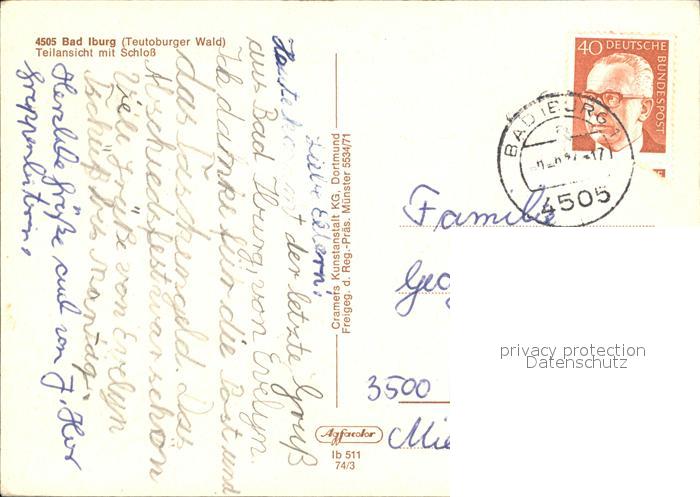 4505 Bad Iburg (Teutoburger Wald)
Teilansicht mit Schloß
Liebe Eltern!
Heute kommt der letzte Gruß
aus Bad Iburg, von Evelyn.
Ich danke für die Post und
das Taschengeld. Das
Abschiedsfest war schön
Viele Grüße von Evelyn
Tschüß bis Montag.
Herzliche Grüße auch von J.
Gruppenleiterin.
Cramers Kunstanstalt KG, Dortmund
Freigeg. d. Reg.-Präs. Münster 5534/71
Agfacolor
Ib 511
74/3
40 DEUTSCHE
BUNDESPOST
BAD IBURG 1
4505
Familie
3500
privacy protection
Datenschutz